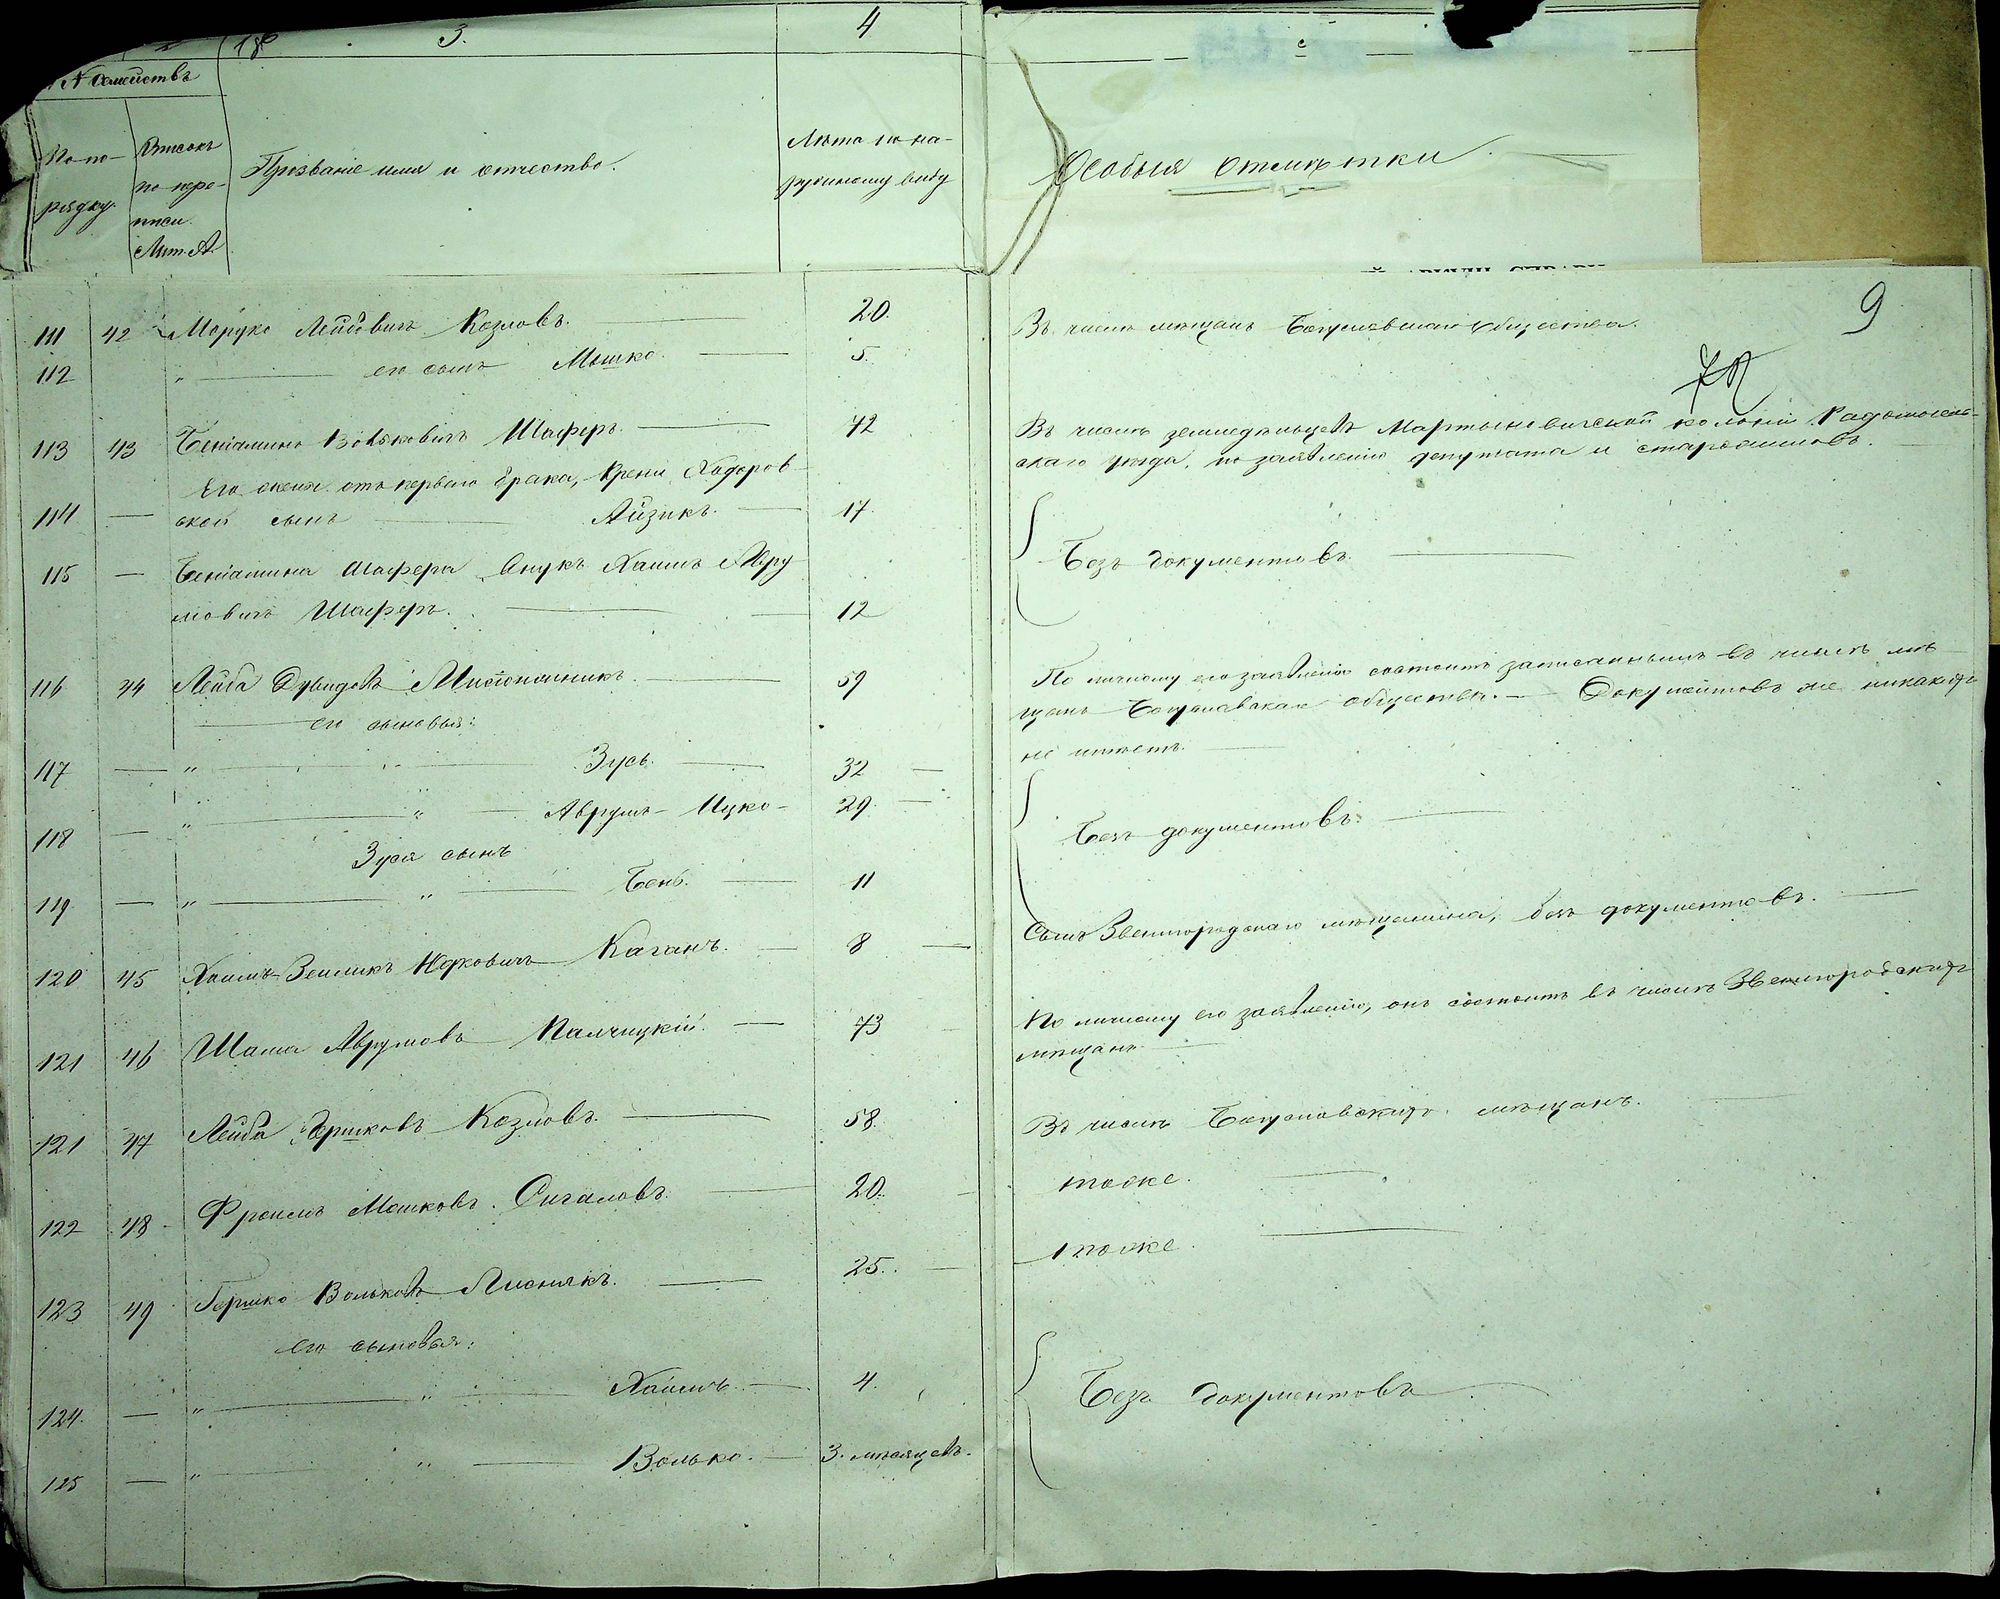 3.
4
№ Семействъ
По по-
рядку.
Писокъ
по пере-
писи.
Лит. А.
Прозваніе имя и отчество.
Лѣта по на-
ружному виду
Особыя отмѣтки
9
111 42 Мордко Лейбовичъ Козловъ. 20. Въ числѣ мѣщанъ Богуславскаго общества.
112 " его сынъ Мошко. 5.
113 43 Беніаминъ Вольковичъ Шаферъ. 42 Въ числѣ земледѣльцевъ Мартыновичской колоніи Радомысль-
скаго уѣзда, по заявленію депутата и старожиловъ.
Его жены отъ перваго брака, Крени Ходоров-
114 — ской сынъ Айзикъ. 17.
Безъ документовъ.
115 — Беніамина Шафера внукъ Хаимъ Авру
мовичъ Шаферъ. 12
116 44 Лейба Дувидовъ 59 По личному его заявленію состоитъ записаннымъ въ числѣ мѣ
щанъ Богуславскаго общества. — Документовъ же никакихъ
не имѣетъ.
его сыновья:
117 — " Зусь. 32
118 — " " Аврумъ-Ицко 29.
Безъ документовъ.
Зуся сынъ
119 — " " Бень. 11
120 45 Хаимъ-Зеликъ Каганъ. 8 Сынъ Звенигородскаго мѣщанина, безъ документовъ.
121 46 Шама Аврумовъ Палчицкій. 73 По личному его заявленію, онъ состоитъ въ числѣ Звенигородскихъ
мѣщанъ.
121 47 Лейба Гершковъ Козловъ. 58. Въ числѣ Богуславскихъ мѣщанъ.
122 48 Фроимъ Мошковъ Сигаловъ. 20. тоже.
123 49 Гершко Вольковъ Лиснякъ. 25. тоже.
его сыновья:
124. — " " Хаимъ. 4.
Безъ документовъ
125 — " " Волько. 3. мѣсяцевъ.